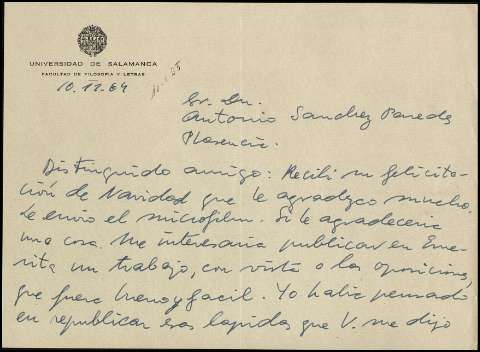 UNIVERSIDAD DE SALAMANCA
FACULTAD DE FILOSOFIA Y LETRAS
10.12.64
Sr. Dn.
Antonio Sanchez Paredes
Plasencia.
Distinguido amigo: Recibí su felicita-
ción de Navidad que le agradezco mucho.
Le envio el microfilm. Si le agradeceria
una cosa. Me interesaria publicar en Eme-
rita un trabajo, con vista a las oposiciones,
que fuera breve y facil. Yo habia pensado
en republicar esas lapidas que V. me dijo